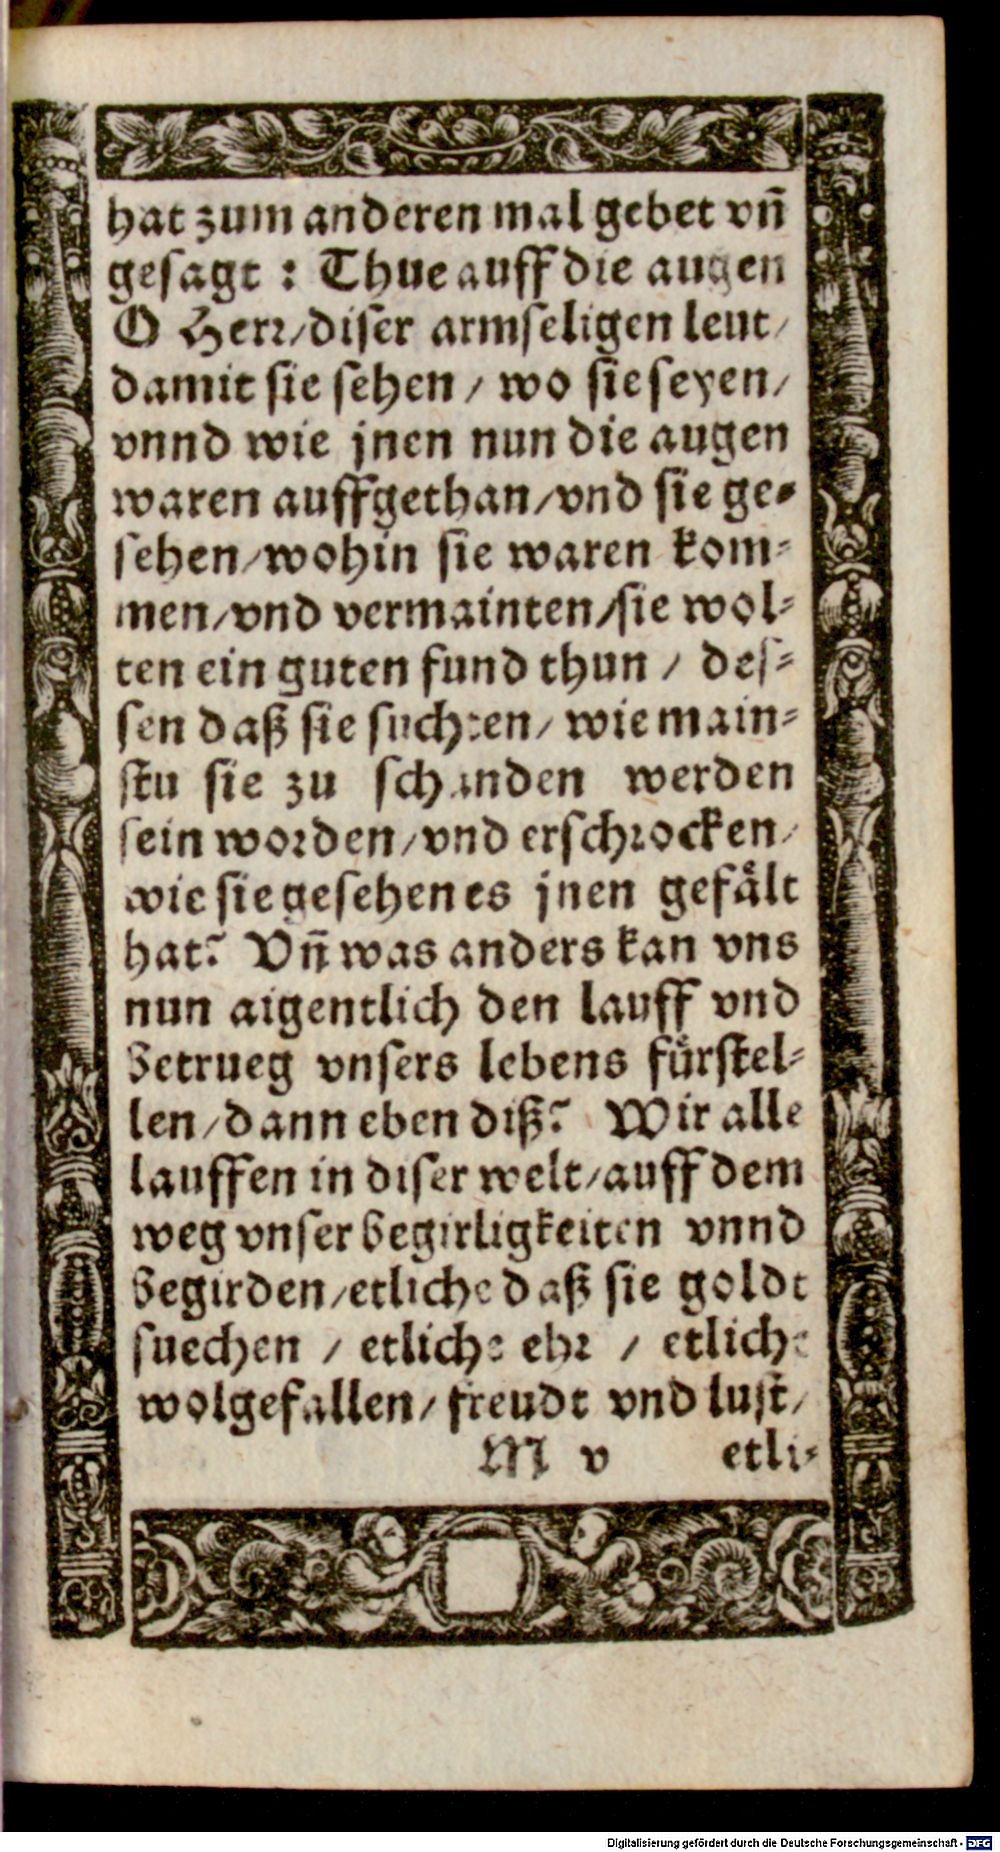 hat zum anderen mal gebet vn̄
gesagt : Thue auff die augen
O Herr/diser armseligen leut/
damit sie sehen / wo sie seyen/
vnnd wie jnen nun die augen
waren auffgethan/vnd sie ge⸗
sehen/wohin sie waren kom⸗
men/vnd vermainten/sie wol⸗
ten ein guten fund thun / des⸗
sen daß sie suchten/ wie main⸗
stu sie zu schanden werden
sein worden/vnd erschrocken/
wie sie gesehen es jnen gefält
hat? Vn̄ was anders kan vns
nun aigentlich den lauff vnd
betrueg vnsers lebens fürstel⸗
len/dann eben diß? Wir alle
lauffen in diser welt/auff dem
weg vnser begirligkeiten vnnd
begirden/etliche daß sie goldt
suechen / etliche ehr / etliche
wolgefallen/ freudt vnd lust/
M v etli⸗
Digitalisierung gefördert durch die Deutsche Forschungsgemeinschaft - DFG